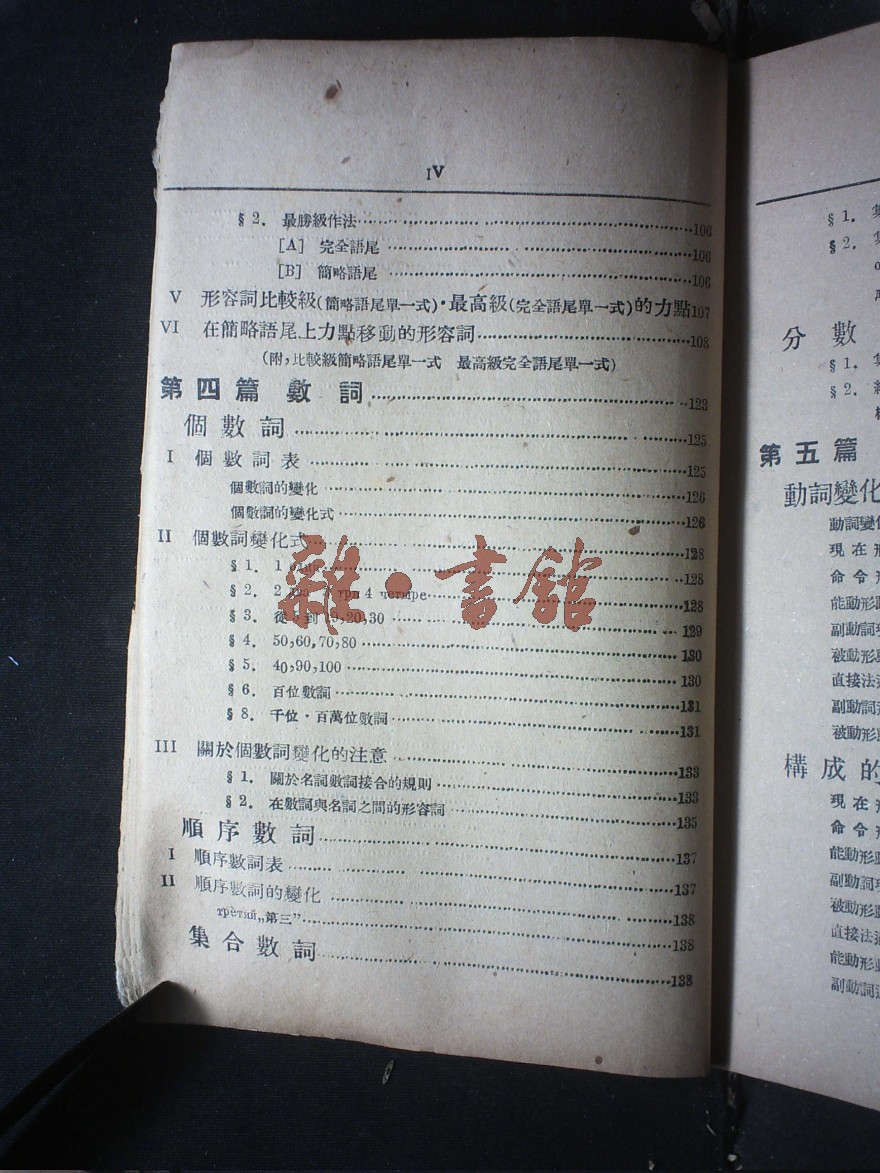 IV
§ 2. 最勝級作法 106
[A] 完全語尾 106
[B] 簡略語尾 106
V 形容詞比較級(簡略語尾單一式)·最高級(完全語尾單一式)的力點107
VI 在簡略語尾上力點移動的形容詞 108
(附,比較級簡略語尾單一式 最高級完全語尾單一式)
第四篇 數 詞 123
個數詞 125
I 個數詞表 125
個數詞的變化 126
個數詞的變化式 126
II 個數詞變化式 128
§ 1. 1 128
§ 2. 2 три 4 четыре 128
§ 3. 從5到19,20,30 129
§ 4. 50,60,70,80 130
§ 5. 40,90,100 130
§ 6. 百位數詞 131
§ 8. 千位·百萬位數詞 131
III 關於個數詞變化的注意 133
§ 1. 關於名詞數詞接合的規則 133
§ 2. 在數詞與名詞之間的形容詞 135
順序數詞 137
I 順序數詞表 137
II 順序數詞的變化 138
третий„第三” 138
集合數詞 138
雜·書館
§ 1.
§ 2.
分 數
§ 1.
§ 2.
第五篇
動詞變化
動詞變
現在
命令
能動形
副動詞
被動形
直接法
副動詞
被動形
構成的
現在
命令
能動形
副動詞
被動形
直接法
能動形
副動詞